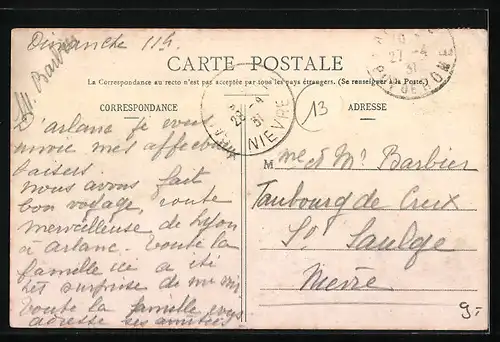 Dimanche 11h
CARTE POSTALE
La Correspondance au recto n'est pas acceptée par tous les pays étrangers. (Se renseigner à la Poste.)
CORRESPONDANCE
ADRESSE
M. Barbier
27 -4
31
PUY DE DOME
28
31
NIEVRE
13
D'arlanc je vous
envoie mes affectueux
baisers.
nous avons fait
bon voyage, route
merveilleuse de Lyon
à arlanc. toute la
famille ici a été
très surprise de me voir
toute la famille vous
adresse ses amitiés
M me et Mr Barbier
Faubourg de Creux
St Saulge
Nièvre
9-